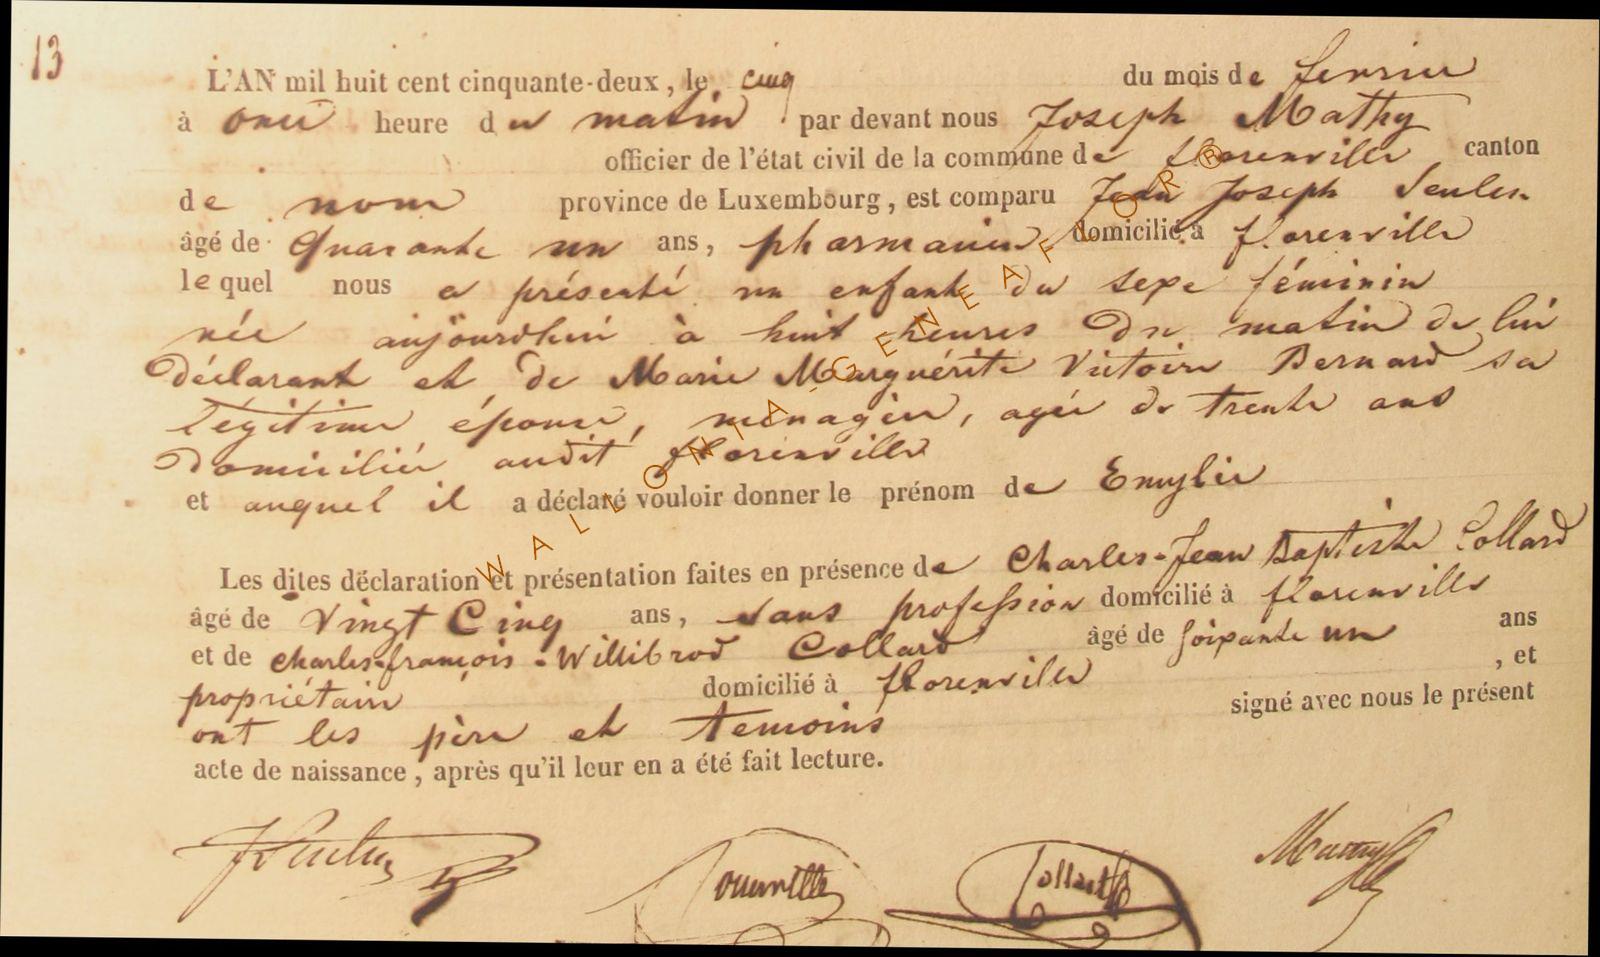 13
L'AN mil huit cent cinquante-deux, le cinq du mois de fevrier
à onze heure du matin par devant nous Joseph Mathy
officier de l'état civil de la commune de florenville canton
de nom province de Luxembourg, est comparu Jean Joseph Seulen
âgé de Quarante un ans, pharmacien domicilié à florenville
lequel nous a présenté un enfant du sexe féminin
née aujourdhui à huit heures du matin de lui
déclarant et de Marie Marguérite Victoire Bernard sa
légitime épouse, ménagère, agée de trente ans
domiciliée audit florenville
et auquel il a déclaré vouloir donner le prénom de Emylie
Les dites déclaration et présentation faites en présence de Charles-Jean Baptiste Collard
âgé de Vingt Cinq ans, sans profession domicilié à florenville
et de charles-françois-Willibrod Collard âgé de soixante un ans
propriétaire domicilié à florenville , et
ont les père et temoins signé avec nous le présent
acte de naissance, après qu'il leur en a été fait lecture.
WALLONIA-GENEAFLOR®